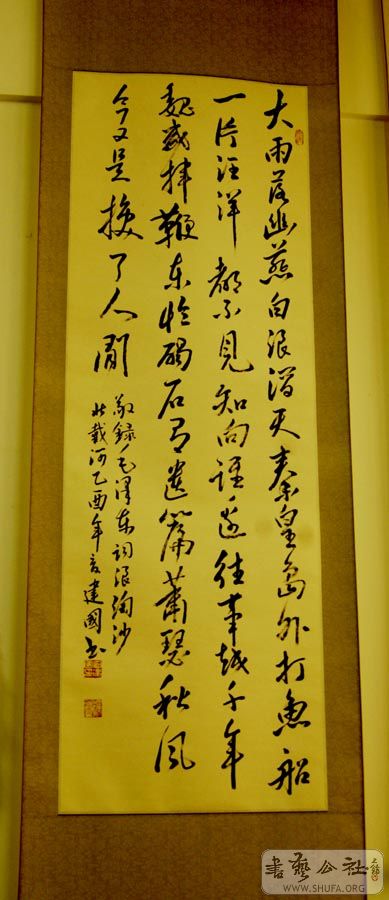 大雨落幽燕白浪滔天秦皇岛外打魚船
一片汪洋都不見知向誰邊往事越千年
魏武揮鞭东临碣石有遺篇蕭瑟秋風
今又是換了人間
敬錄毛澤东詞浪淘沙
北戴河乙酉年建國书
書藝公社
WWW.SHUFA.ORG